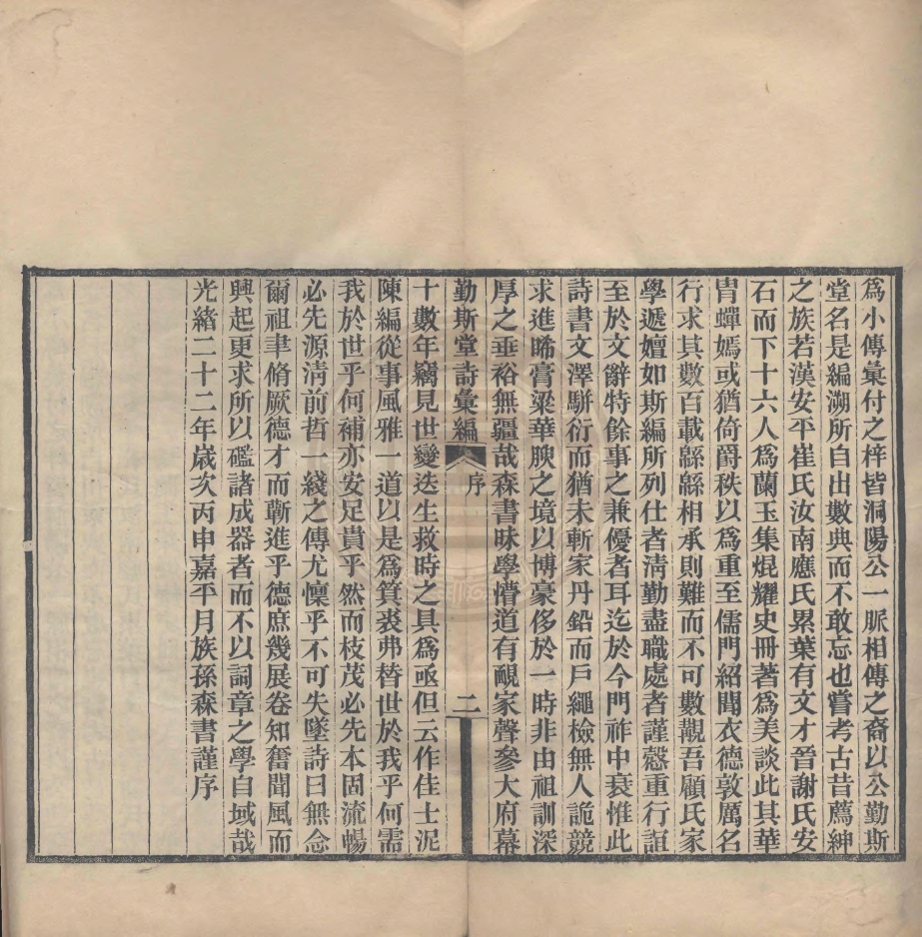 爲小傳彙付之梓皆洞陽公一脈相傳之裔以公勤斯
堂名是編溯所自出數典而不敢忘也嘗考古昔薦紳
之族若漢安平崔氏汝南應氏累葉有文才晉謝氏安
石而下十六人爲蘭玉集焜耀史冊著爲美談此其華
胄蟬嫣或猶倚爵秩以爲重至儒門紹聞衣德敦厲名
行求其數百載緜緜相承則難而不可數觀吾顧氏家
學遞嬗如斯編所列仕者淸勤盡職處者謹愨重行誼
至於文辭特餘事之兼優者耳迄於今門祚中衰惟此
詩書文澤駢衍而猶未斬家丹鉛而戶繩檢無人詭競
求進晞膏粱華腴之境以博豪侈於一時非由祖訓深
厚之垂裕無疆哉森書昧學懵道有靦家聲參大府幕
勤斯堂詩彙編 序 二
十數年竊見世變迭生救時之具爲亟但云作佳士泥
陳編從事風雅一道以是爲箕裘弗替世於我乎何需
我於世乎何補亦安足貴乎然而枝茂必先本固流暢
必先源淸前哲一綫之傳尤懍乎不可失墜詩曰無念
爾祖聿脩厥德才而蘄進乎德庶幾展卷知奮聞風而
興起更求所以礛諸成器者而不以詞章之學自域哉
光緖二十二年歲次丙申嘉平月族孫森書謹序